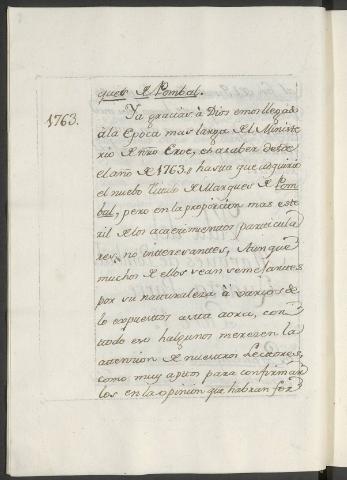 ques de Pombal.
1763.
Ya gracias à Dios emos llegado
à la Epoca mas larga del Ministe
rio de nro Eroe, es à saber desde
el año de 1763. hasta que adquirió
el nuebo Titulo de Marques de Pom
bal, pero en la proporcion mas este
ril de los acaecimientos particula
res, no interesantes, Aunque
muchos de ellos sean semejantes
por su naturaleza à varios de
lo expuestos asta aora, con
todo eso halgunos merecen la
attencion de nuestros Lectores,
como muy aptos para confirmar
los en la opinion que habran for